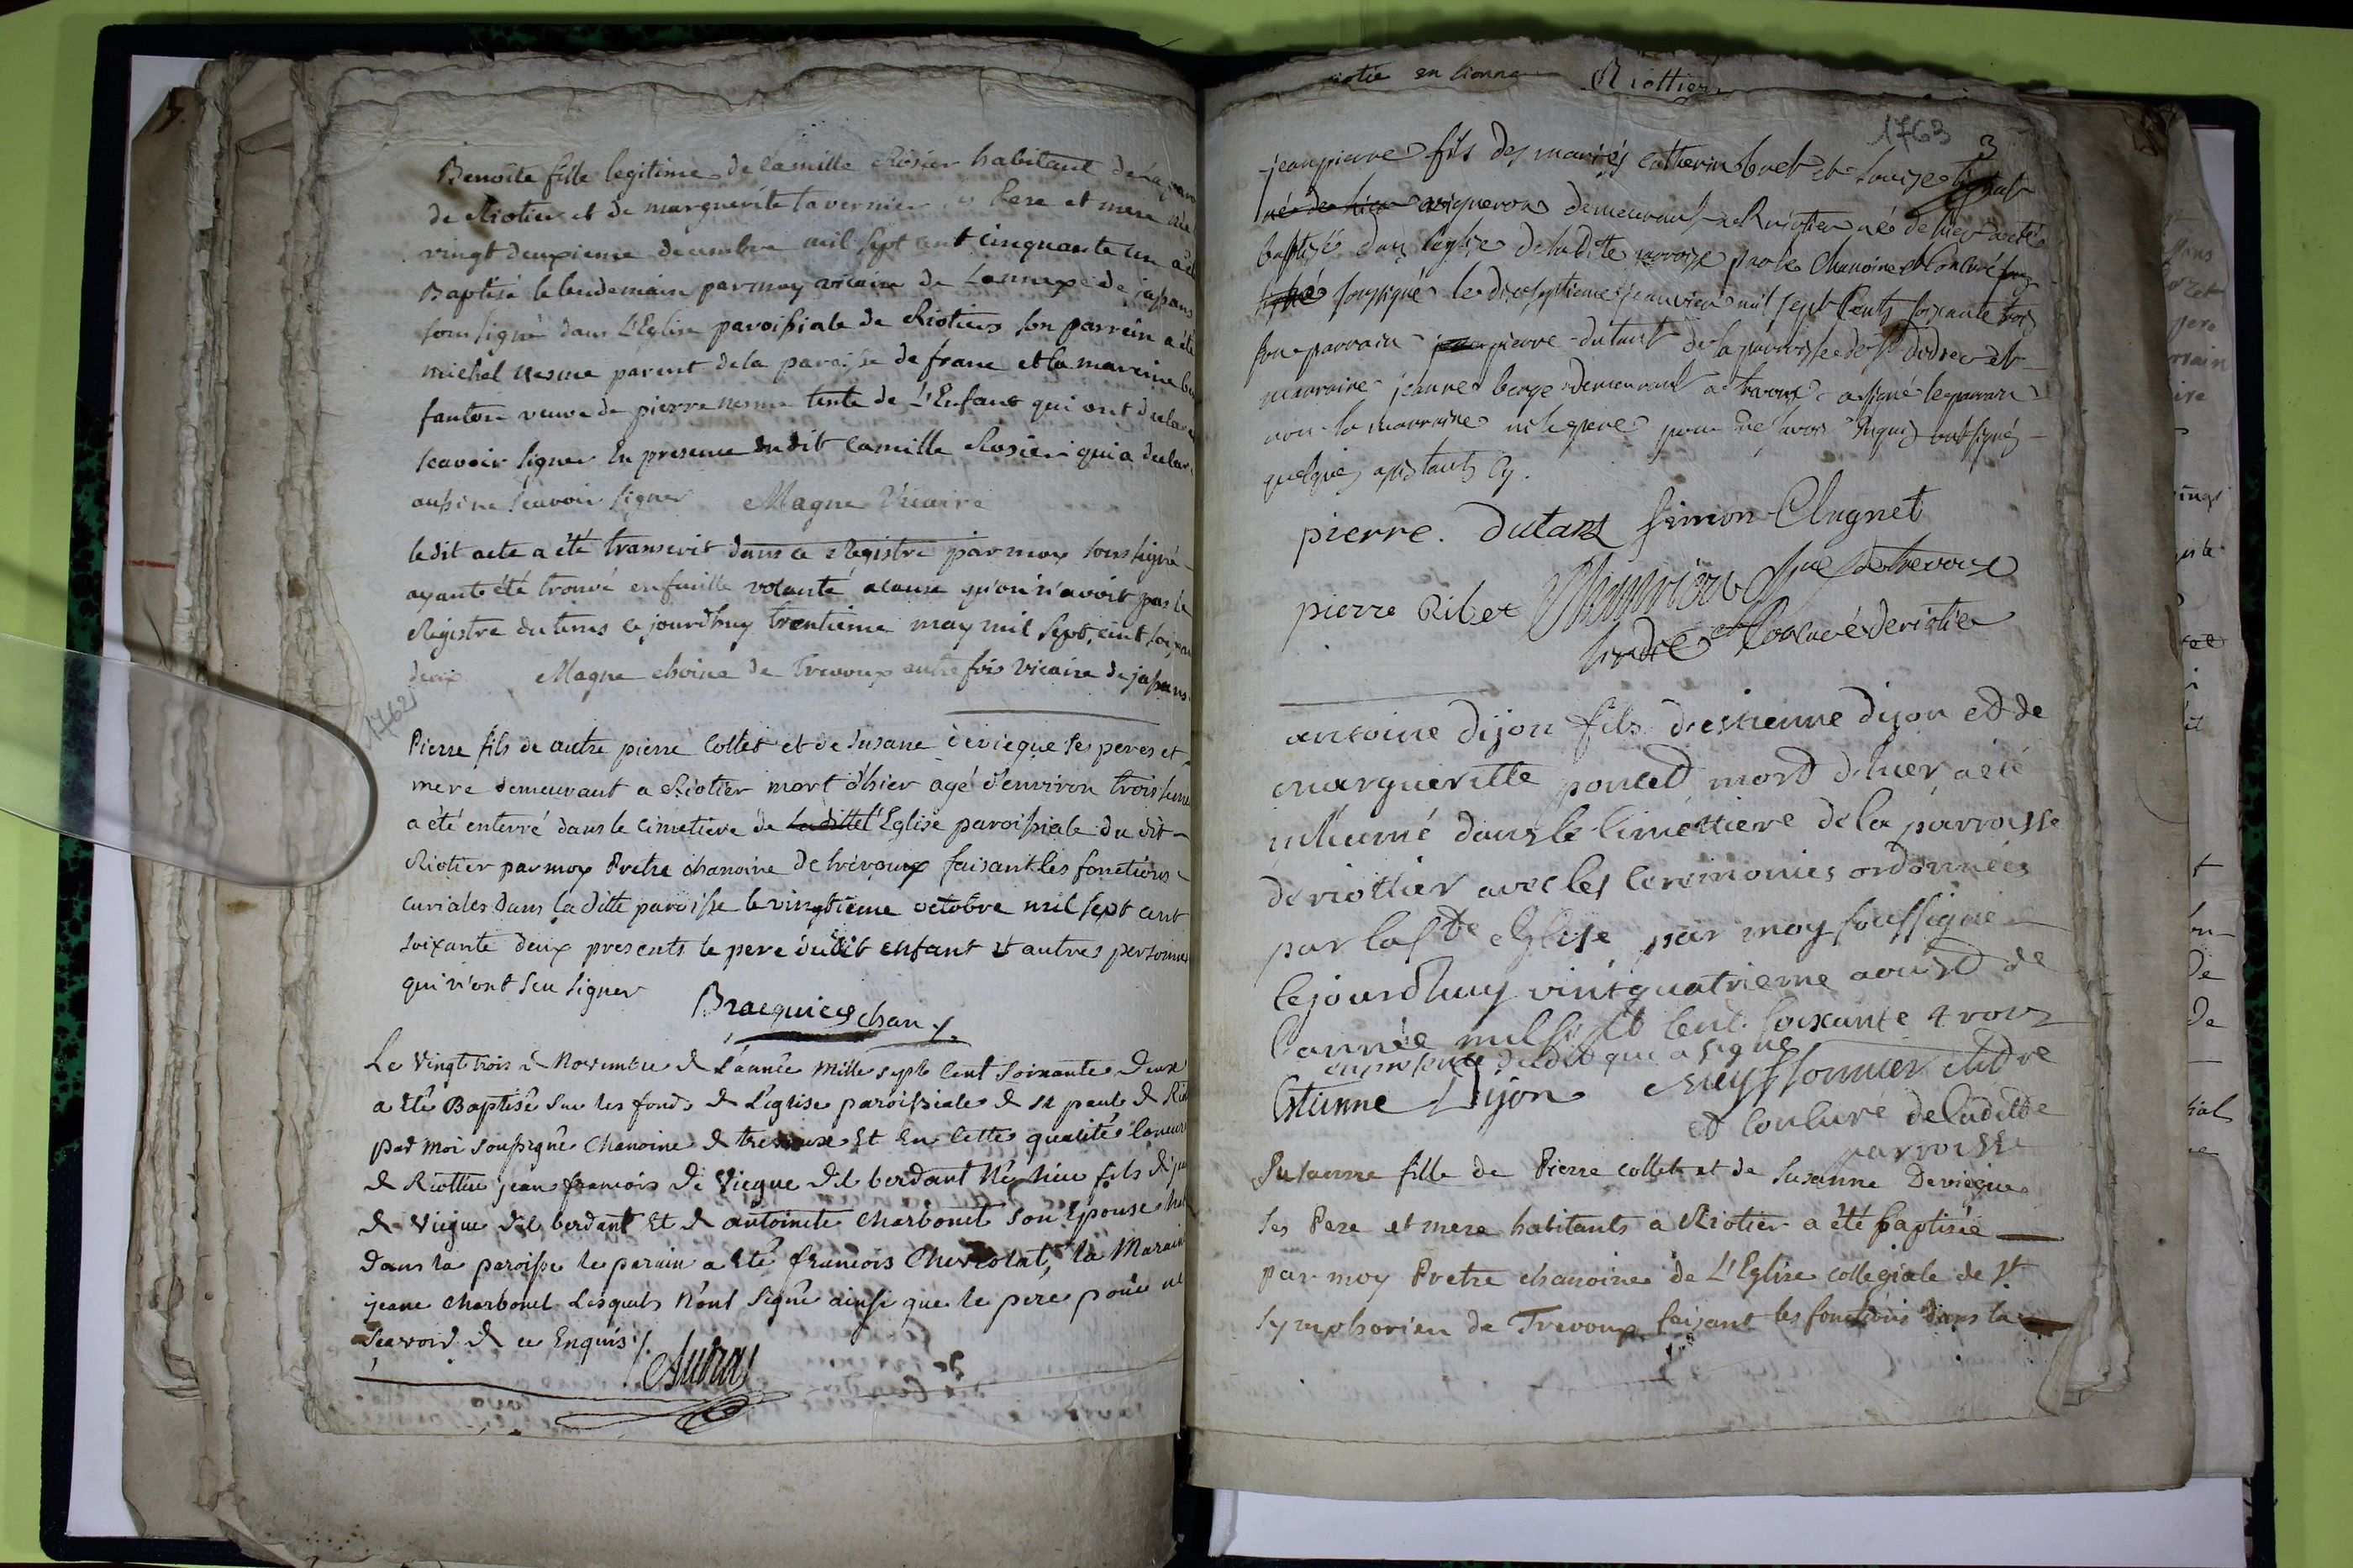 Benoîte fille legitime de Camille Rosier habitant
de Riotier et de marguerite tavernier Pere et mere née
vingt deuxieme decembre mil sept cent cinquante un a été
Baptisé le lendemain par moy vicaire de L'annexe de jassans
soussigné dans L'Eglise paroissiale de Riotiers son parrein a été
michel nesme parent de la paroisse de frans et la mareine
fanton veuve de pierre nesme tente de L'Enfant qui ont declaré
scavoir signer En presence dudit Camille Rosier qui a declaré
aussi ne scavoir signer Magne Vicaire
ledit acte a été transcrit dans ce Registre par moy soussigné
ayant été trouvé en feuille volante a cause qu'on n'avoit pas le
Registre du tems ce jourdhuy trentieme may mil sept cent soixante
deux Magne choine de Trevoux autre fois Vicaire de jassans
1762
Pierre fils de autre pierre Collet et de Susane devieque ses peres et
mere demeurant a Riotier mort d'hier agé d'environ trois
a été enterré dans le cimetiere de la ditte l'Eglise paroissiale du dit
Riotier par moy Pretre chanoine de trévoux faisant les fonctions
curiales dans la ditte paroisse le vingtieme octobre mil sept cent
soixante deux presents le pere dudit enfant et autres personnes
qui n'ont sceu signer
Bracquier chan.
Le Vingt trois de Novembre de L'année Mille septe Cent Soixante Deux
a été Baptisé sur les fonds de L'eglise paroissiale de st paul de
par moi soussigné Chanoine de trevoux Et En Cette qualité
de Riottier jean francois De Viegue dil berdant Né hier fils de
de Viegue dil berdant Et de antoinete Charbonet son Epouse
Dans la paroisse le parain a été francois Chevrolat, la Marain
jeane Charbonet Lesquels n'ont signé ainsi que le pere pour ne
scavoir de ce Enquis ./.
Aubras
en Lionna Riottier
1763 3
jean pierre fils des mariés Catherin buet et Louise
né de hier vigneron demeurant a Riotier né de hier a été
baptisé dans l'eglise de la ditte parroisse par le Chanoine
soussigné le dixseptieme janvier mil sept Cents soixante trois
son parrain pierre dutant de la parroisse de St didier et
marraine jeanne berge demeurant a trevoux a signé le parrain
non la marraine ni le pere pour ne savoir Inquis ont signé
quelques assistants Cy.
pierre. dutant Simon Clugnet
pierre Ribet
de trevoux
de riotier
antoine dijon fils destienne dijon et de
margueritte poncet mort d'hier a été
inhumé dans le Cimettiere de la parroisse
de riottier avec les Ceremonies ordonnées
par la Ste Eglise par moy soussigné
cejourdhuy vintquatrieme aoust de
l'année mil sept Cent soixante trois
en presence dudit qui a signé
Estienne Dijon Meyssonnier
et Concuré de laditte
parroisse
Susanne fille de Pierre collet et de Susanne Devieque
ses Pere et mere habitants a Riotier a été baptisée
par moy Pretre chanoine de L'Eglise collegiale de St
Symphorien de Trevoux faisant les fonctions dans la